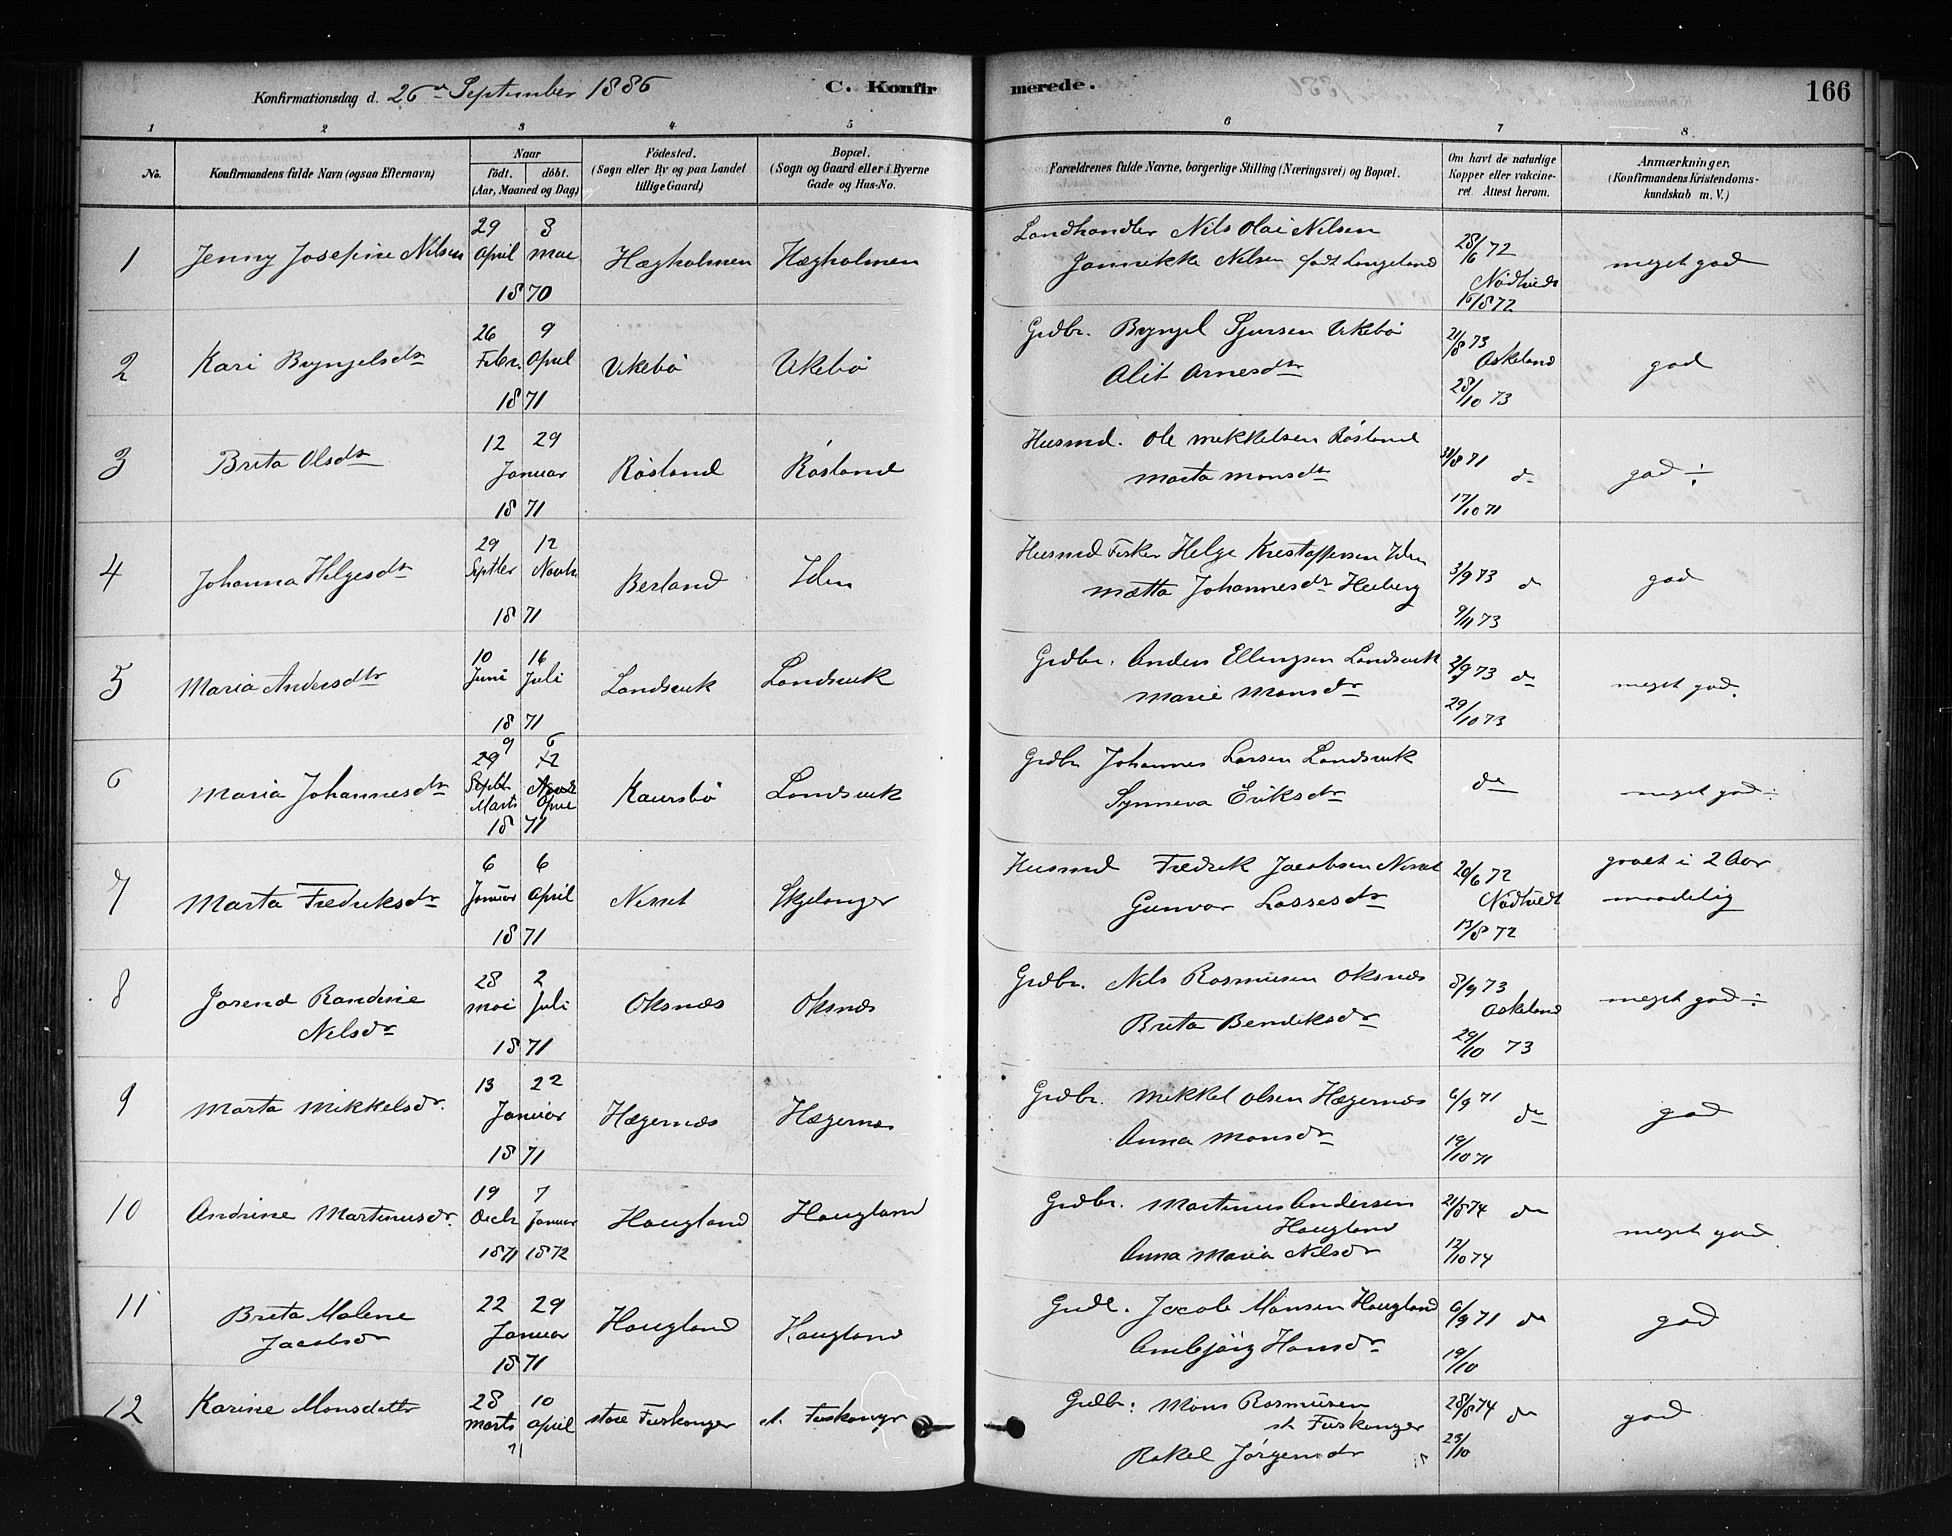 Konfirmationsdag d. 26de September 1886 C. Konfirmerede. 166
1 2 3 4 5 6 7 8
No. Konfirmandens fulde Navn (ogsaa Efternavn) Naar födt. döbt. (Aar, Maaned og Dag) Födested. (Sogn eller By og paa Landet tillige Gaard) Bopæl. (Sogn og Gaard eller i Byerne Gade og Hus-No. Forældrenes fulde Navne, borgerlige Stilling (Næringsvei) og Bopæl. Om havt de naturlige Kopper eller vakcineret. Attest herom. Anmærkninger. (Konfirmandens Kristendomskundskab m. V.)
29 3 Landhandler Nils Olai Nilsen 28/6 72
1 Jenny Josefine Nilsen April Mai Hægholmen Hægholmen Jannikke Nilsen født Langeland Nødtvedt meget god
18 70 1872
26 9 Grdbr. Bryngel Sjursen Vikebø 21/8 73
2 Kari Bryngelsdtr Febr. April Vikebø Vikebø Alit Arnesdtr Askeland god
18 71 28/10 73
12 29 Husmd. Ole Mikkelsen Røsland 31/8 71
3 Brita Olsdtr Januar Røsland Røsland Marta Monsdtr do god ÷
18 71 17/10 71
29 12 Husmd Fisker Helge Kristoffersen Iden
4 Johanna Helgesdtr Septbr Novbr Berland Iden Mætta Johannesdtr Heiberg 3/9 73 do god
18 71 9/11 73
10 16 Grdbr. Anders Ellingsen Landsvik 2/9 73 do
5 Maria Andersdtr Juni Juli Landsvik Landsvik Marie Monsdtr meget god.
18 71 29/10 73
9 6
29 12 Grdbr Johannes Larsen Landsvik
6 Maria Johannesdtr Septbr Novbr Kaursbø Landsvik Synneva Eriksdtr do meget god ÷
Marts April
18 71
6 6 Husmd Fredrik Jacobsen Nesset 20/6 72 gaaet i 2 Aar
7 Marta Fredriksdtr Januar April Nesset Skjelanger Gunvor Lassesdtr Nødtvedt maadelig
18 71 13/8 72
28 2 Grdbr. Nils Rasmusen Oksnæs 8/9 73
8 Jorend Randine Mai Juli Oksnæs Oksnæs Brita Bendiksdtr Askeland meget god ÷
Nilsdtr 18 71 29/10 73
13 22 Grdbr. Mikkel Olsen Hægernæs 6/9 71
9 Marta Mikkelsdtr. Januar Hægernæs Hægernæs Anna Monsdtr do god
18 71 19/10 71
19 7 Grdbr. Martinus Andersen 21/8 74 do
10 Andrine Martinusdtr. Decbr Januar Haugland Haugland Haugland meget god
1871 1872 Anna Maria Nilsdtr 12/10 74
11 22 29 Grdbr. Jacob Monsen Haugland 6/9 71 do
Brita Malene Januar Haugland Haugland Anbjørg Hansdtr god
Jacobsdr 18 71 19/10
28 10 Grdbr. Mons Rasmusen 28/8 74 do
12 Karine Monsdatter Marts April store Furskonger st. Furskonger st. Furskonger god
71 Rakel Jørgensdtr 23/10